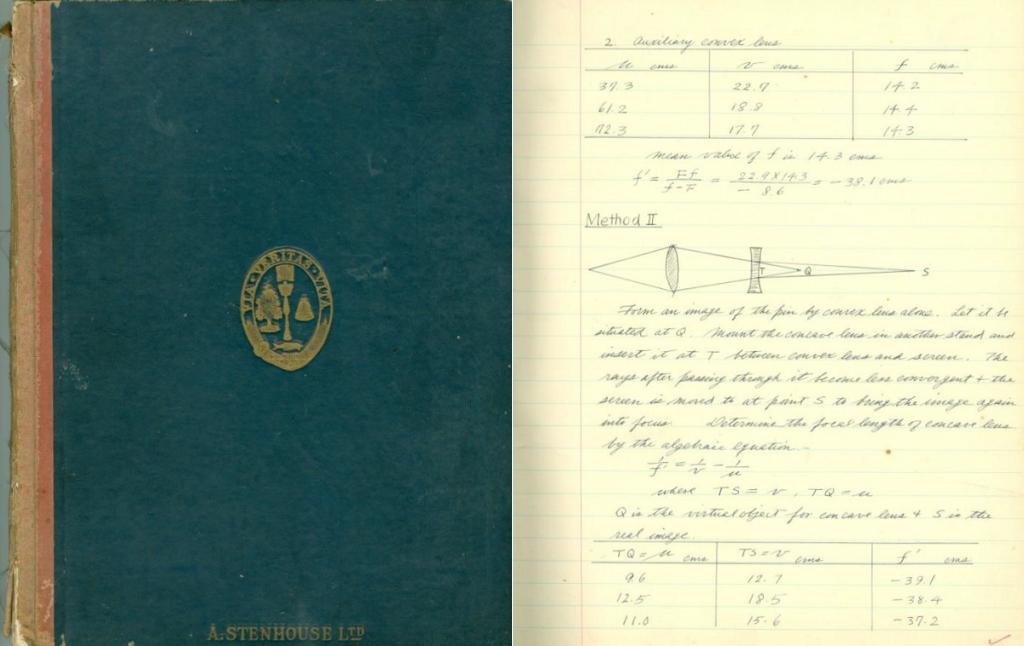 VIA · VERITAS · VITA
A. STENHOUSE LTD
2. Auxiliary convex lens
u cms v cms f cms
37.3 22.7 14.2
61.2 18.8 14.4
72.3 17.7 14.3
mean value of f is 14.3 cms
f' = Ff/f-F = 22.9×14.3/-8.6 = -38.1 cms
Method II
T Q S
Form an image of the pin by convex lens alone. Let it be
situated at Q. Mount the concave lens in another stand and
insert it at T between convex lens and screen. The
rays after passing through it become less convergent + the
screen is moved to at point S to bring the image again
into focus. Determine the focal length of concave lens
by the algebraic equation:-
1/f' = 1/v - 1/u
where TS = v, TQ = u
Q is the virtual object for concave lens + S is the
real image.
TQ = u cms TS = v cms f' cms
9.6 12.7 -39.1
12.5 18.5 -38.4
11.0 15.6 -37.2